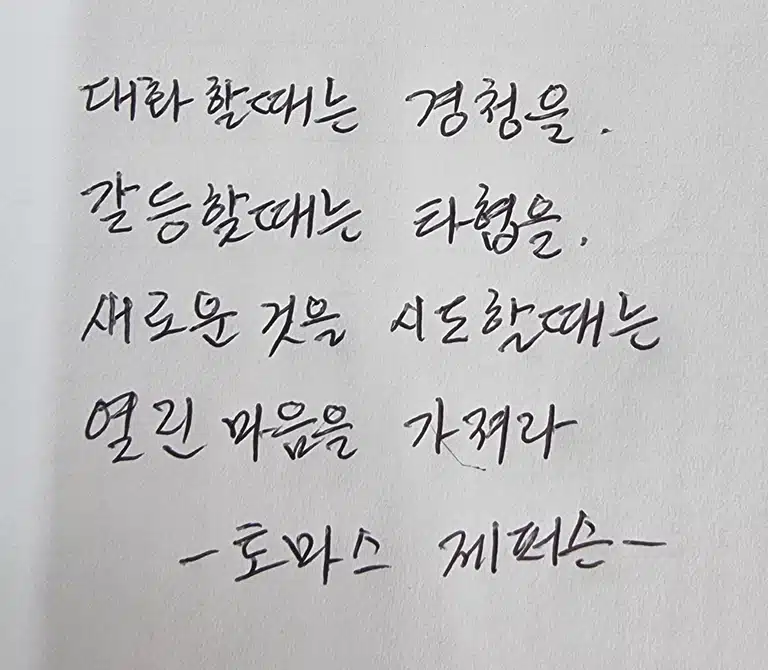 대화할때는 경청을.
갈등할때는 타협을.
새로운 것을 시도할때는
열린 마음을 가져라
- 토마스 제퍼슨 -